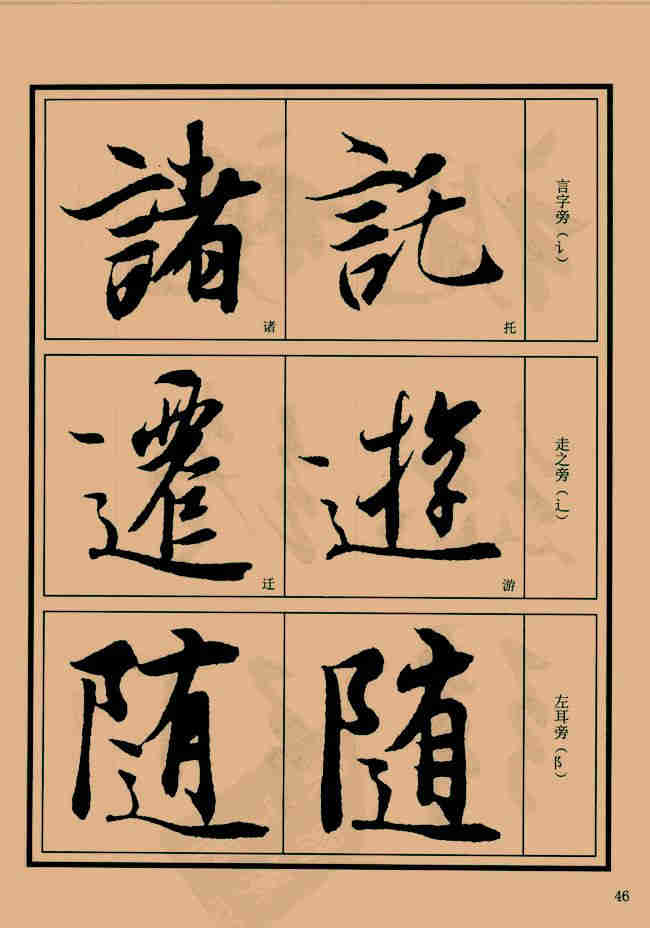 言字旁（讠）
託
托
諸
诸
走之旁（辶）
遊
游
遷
迁
左耳旁（阝）
随
随
46